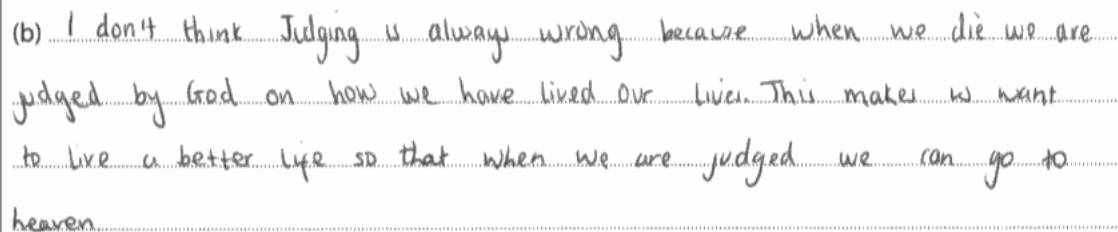 (b) I don't think Judging is always wrong because when we die we are
judged by God on how we have lived our lives. This makes us want
to live a better life so that when we are judged we can go to
heaven